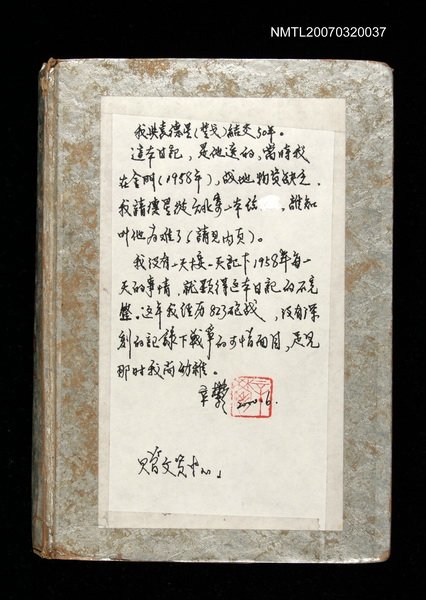 NMTL20070320037
我與袁德星(楚戈)結交50年。
這本日記,是他送的,當時我
在金門(1958年),战地物資缺乏.
我請德星從台北寄一本给,誰知
叫他为难了(請見内頁)。
我没有一天接一天記下1958年每一
天的事情,就顯得這本日記的不完
整。这年我经历823砲战,没有深
刻的記錄下战争的可怕面目,足見
那时我尚幼稚。
辛鬱 2000.6.
贈文資中心